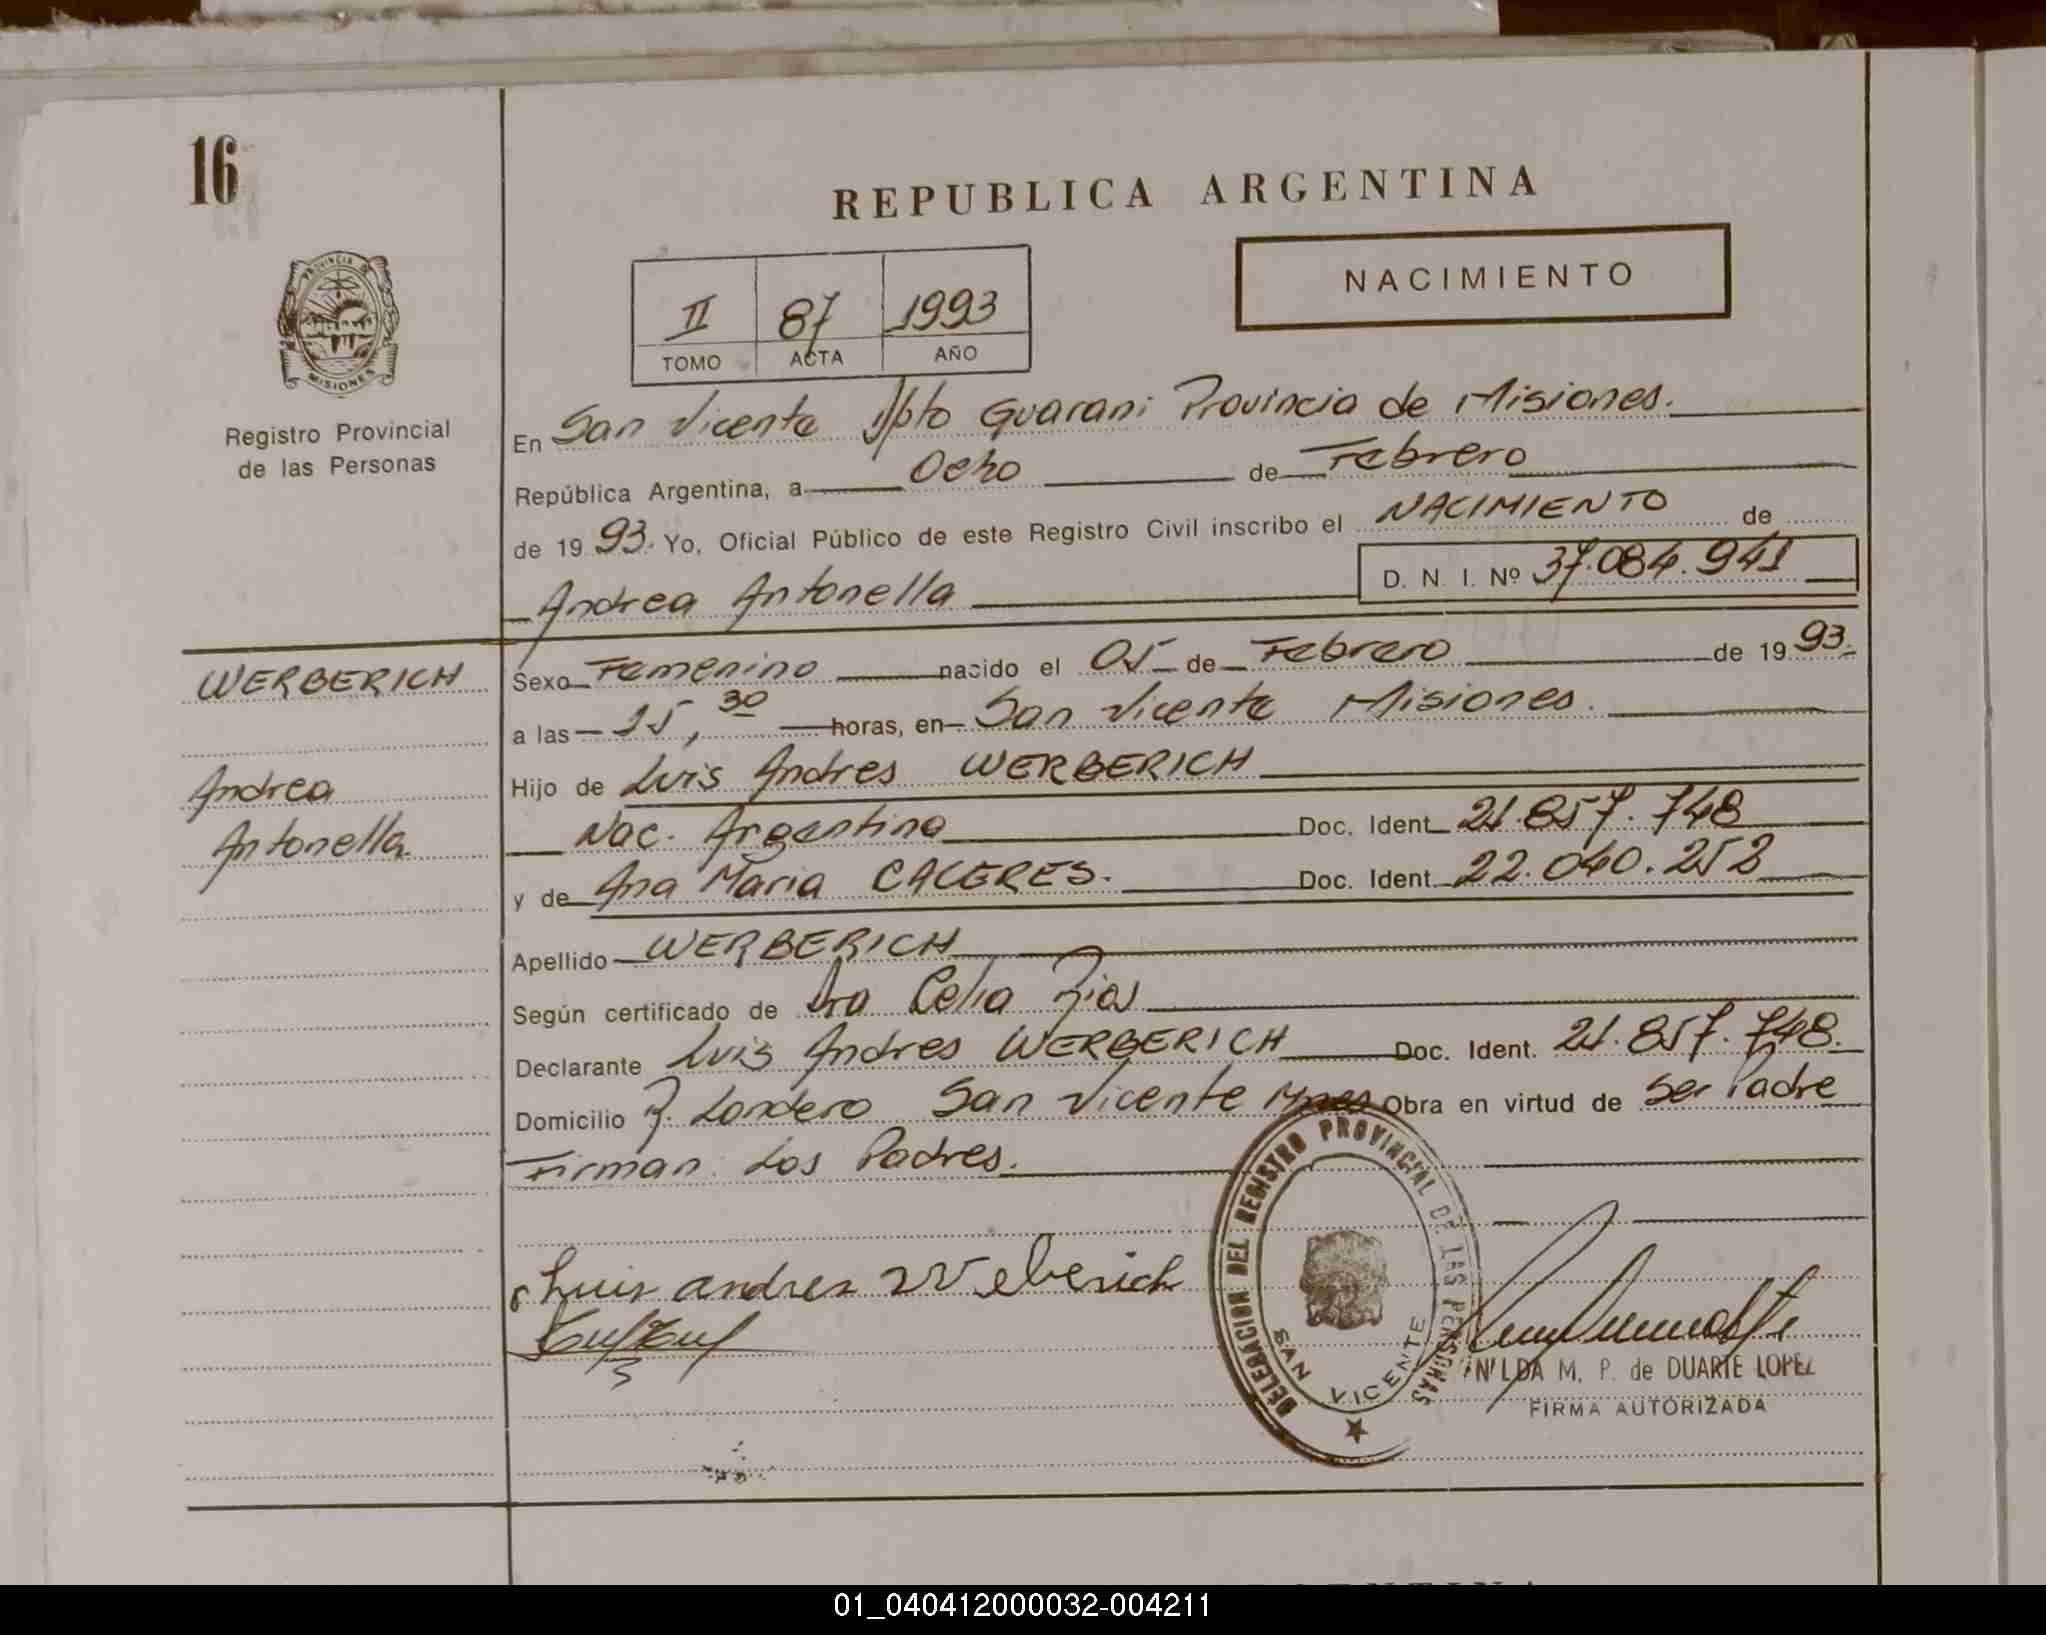 16
REPUBLICA ARGENTINA
NACIMIENTO
II 87 1993
TOMO ACTA AÑO
PROVINCIA DE MISIONES
Registro Provincial
de las Personas
En San Vicente Dpto Guarani Provincia de Misiones.
República Argentina, a Ocho de Febrero
de 1993. Yo, Oficial Público de este Registro Civil inscribo el NACIMIENTO de
Andrea Antonella D. N. I. Nº 37.084.941
WERBERICH
Andrea
Antonella
Sexo Femenino nacido el 05 de Febrero de 1993.
a las 15,30 horas, en San Vicente Misiones.
Hijo de Luis Andres WERBERICH
Nac. Argentina Doc. Ident 21.857.748
y de Ana Maria CACERES. Doc. Ident 22.040.252
Apellido WERBERICH
Según certificado de Dra Celia Rios
Declarante Luis Andres WERBERICH Doc. Ident. 21.857.748.
Domicilio B. Londero San Vicente Mnes Obra en virtud de Ser Padre
Firman Los Padres.
Luis andres Weberich
DELEGACION DEL REGISTRO PROVINCIAL DE LAS PERSONAS
SAN VICENTE
NILDA M. P. de DUARTE LOPEZ
FIRMA AUTORIZADA
01_040412000032-004211